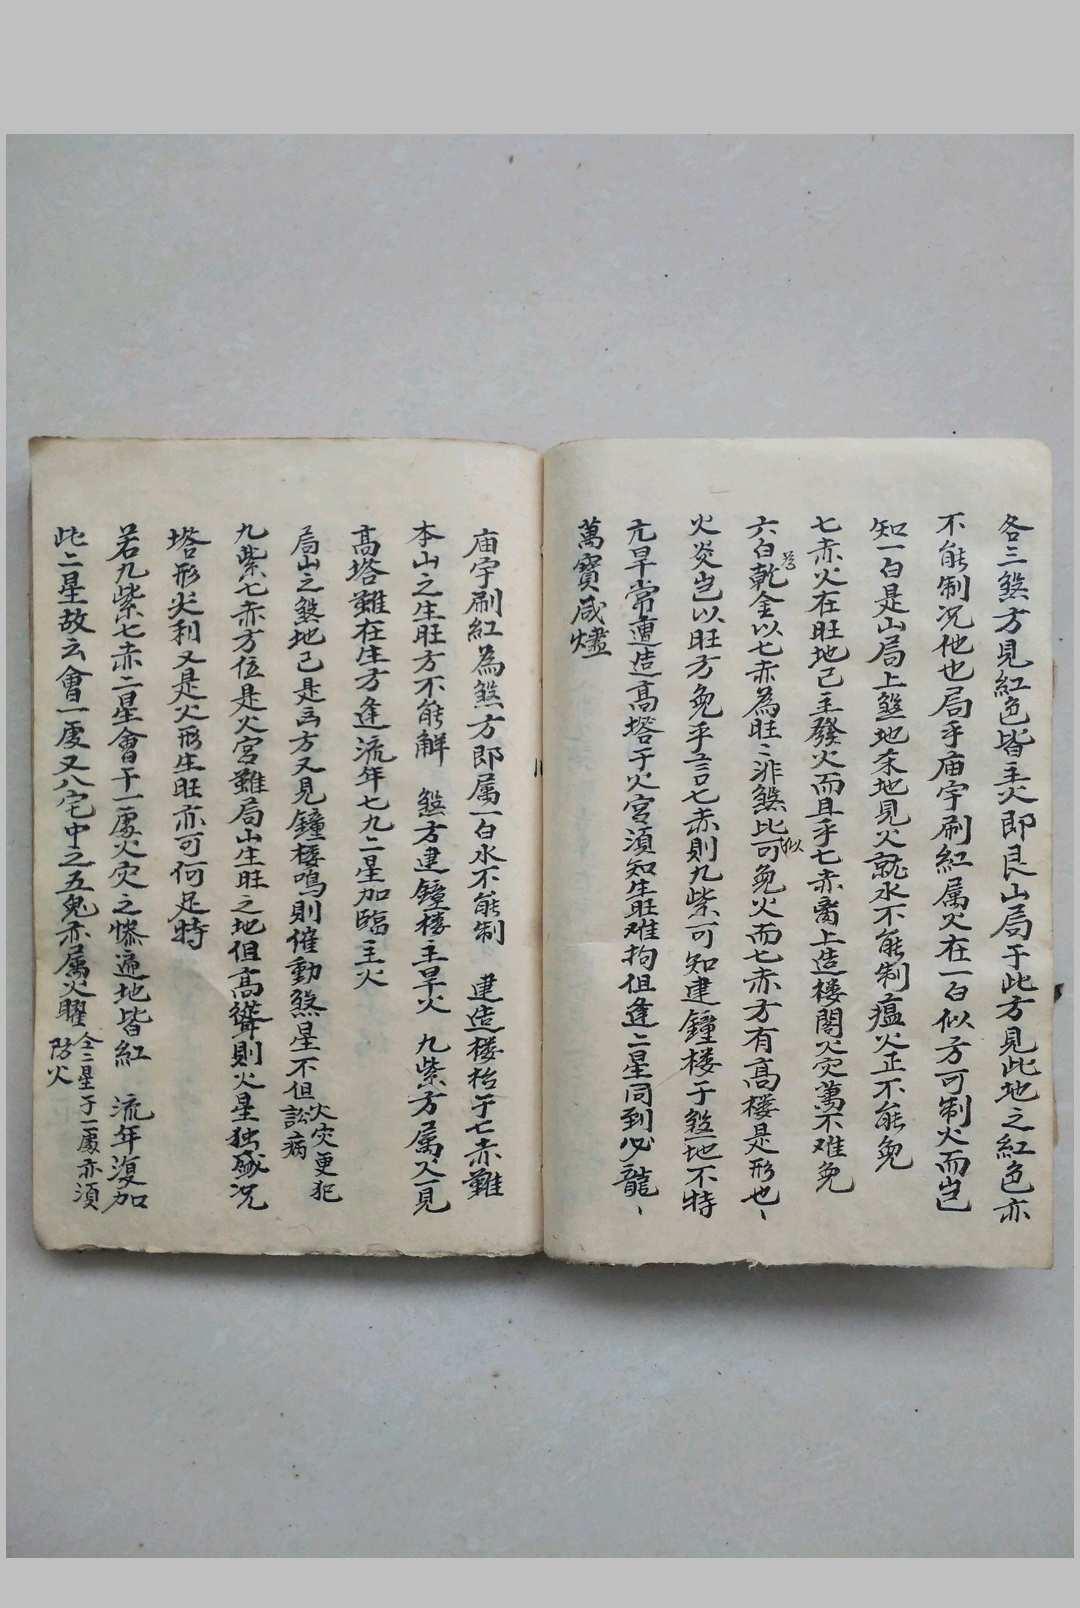 各三煞方見紅色皆主火即艮山局于此方見此地之紅色亦
不能制况他也局乎庙宇刷紅属火在一白似方可制火而岂
知一白是山局上煞地本地見火就水不能制瘟火正不能免
七赤火在旺地已主發火而且乎七赤上造楼閣火灾萬不难免
六白乾金以七赤為旺旺非煞比似可免火而七赤方有高楼是形也
火炎岂以旺方免乎言七赤則九紫可知建鐘楼于煞地不特
亢旱常遭造高塔于火宮須知生旺难拘但逢二星同到必龍
萬寳咸燼
庙宇刷紅為煞方即属一白水不能制 建造楼枱于七赤難
本山之生旺方不能解 煞方建鐘楼主旱火 九紫方属火見
高塔難在生方逢流年七九二星加臨主火
局山之煞地已是凶方又見鐘楼鳴則催動煞星不但火灾更犯訟病
九紫七赤方位是火宮雖局山生旺之地但高聳則火星独盛况
塔形尖利又是火形生旺亦可何足恃
若九紫七赤二星會于一處火灾之惨遍地皆紅 流年復加
此二星故云會一處又八宅中之五鬼亦属火曜仝二星于一處亦須防火